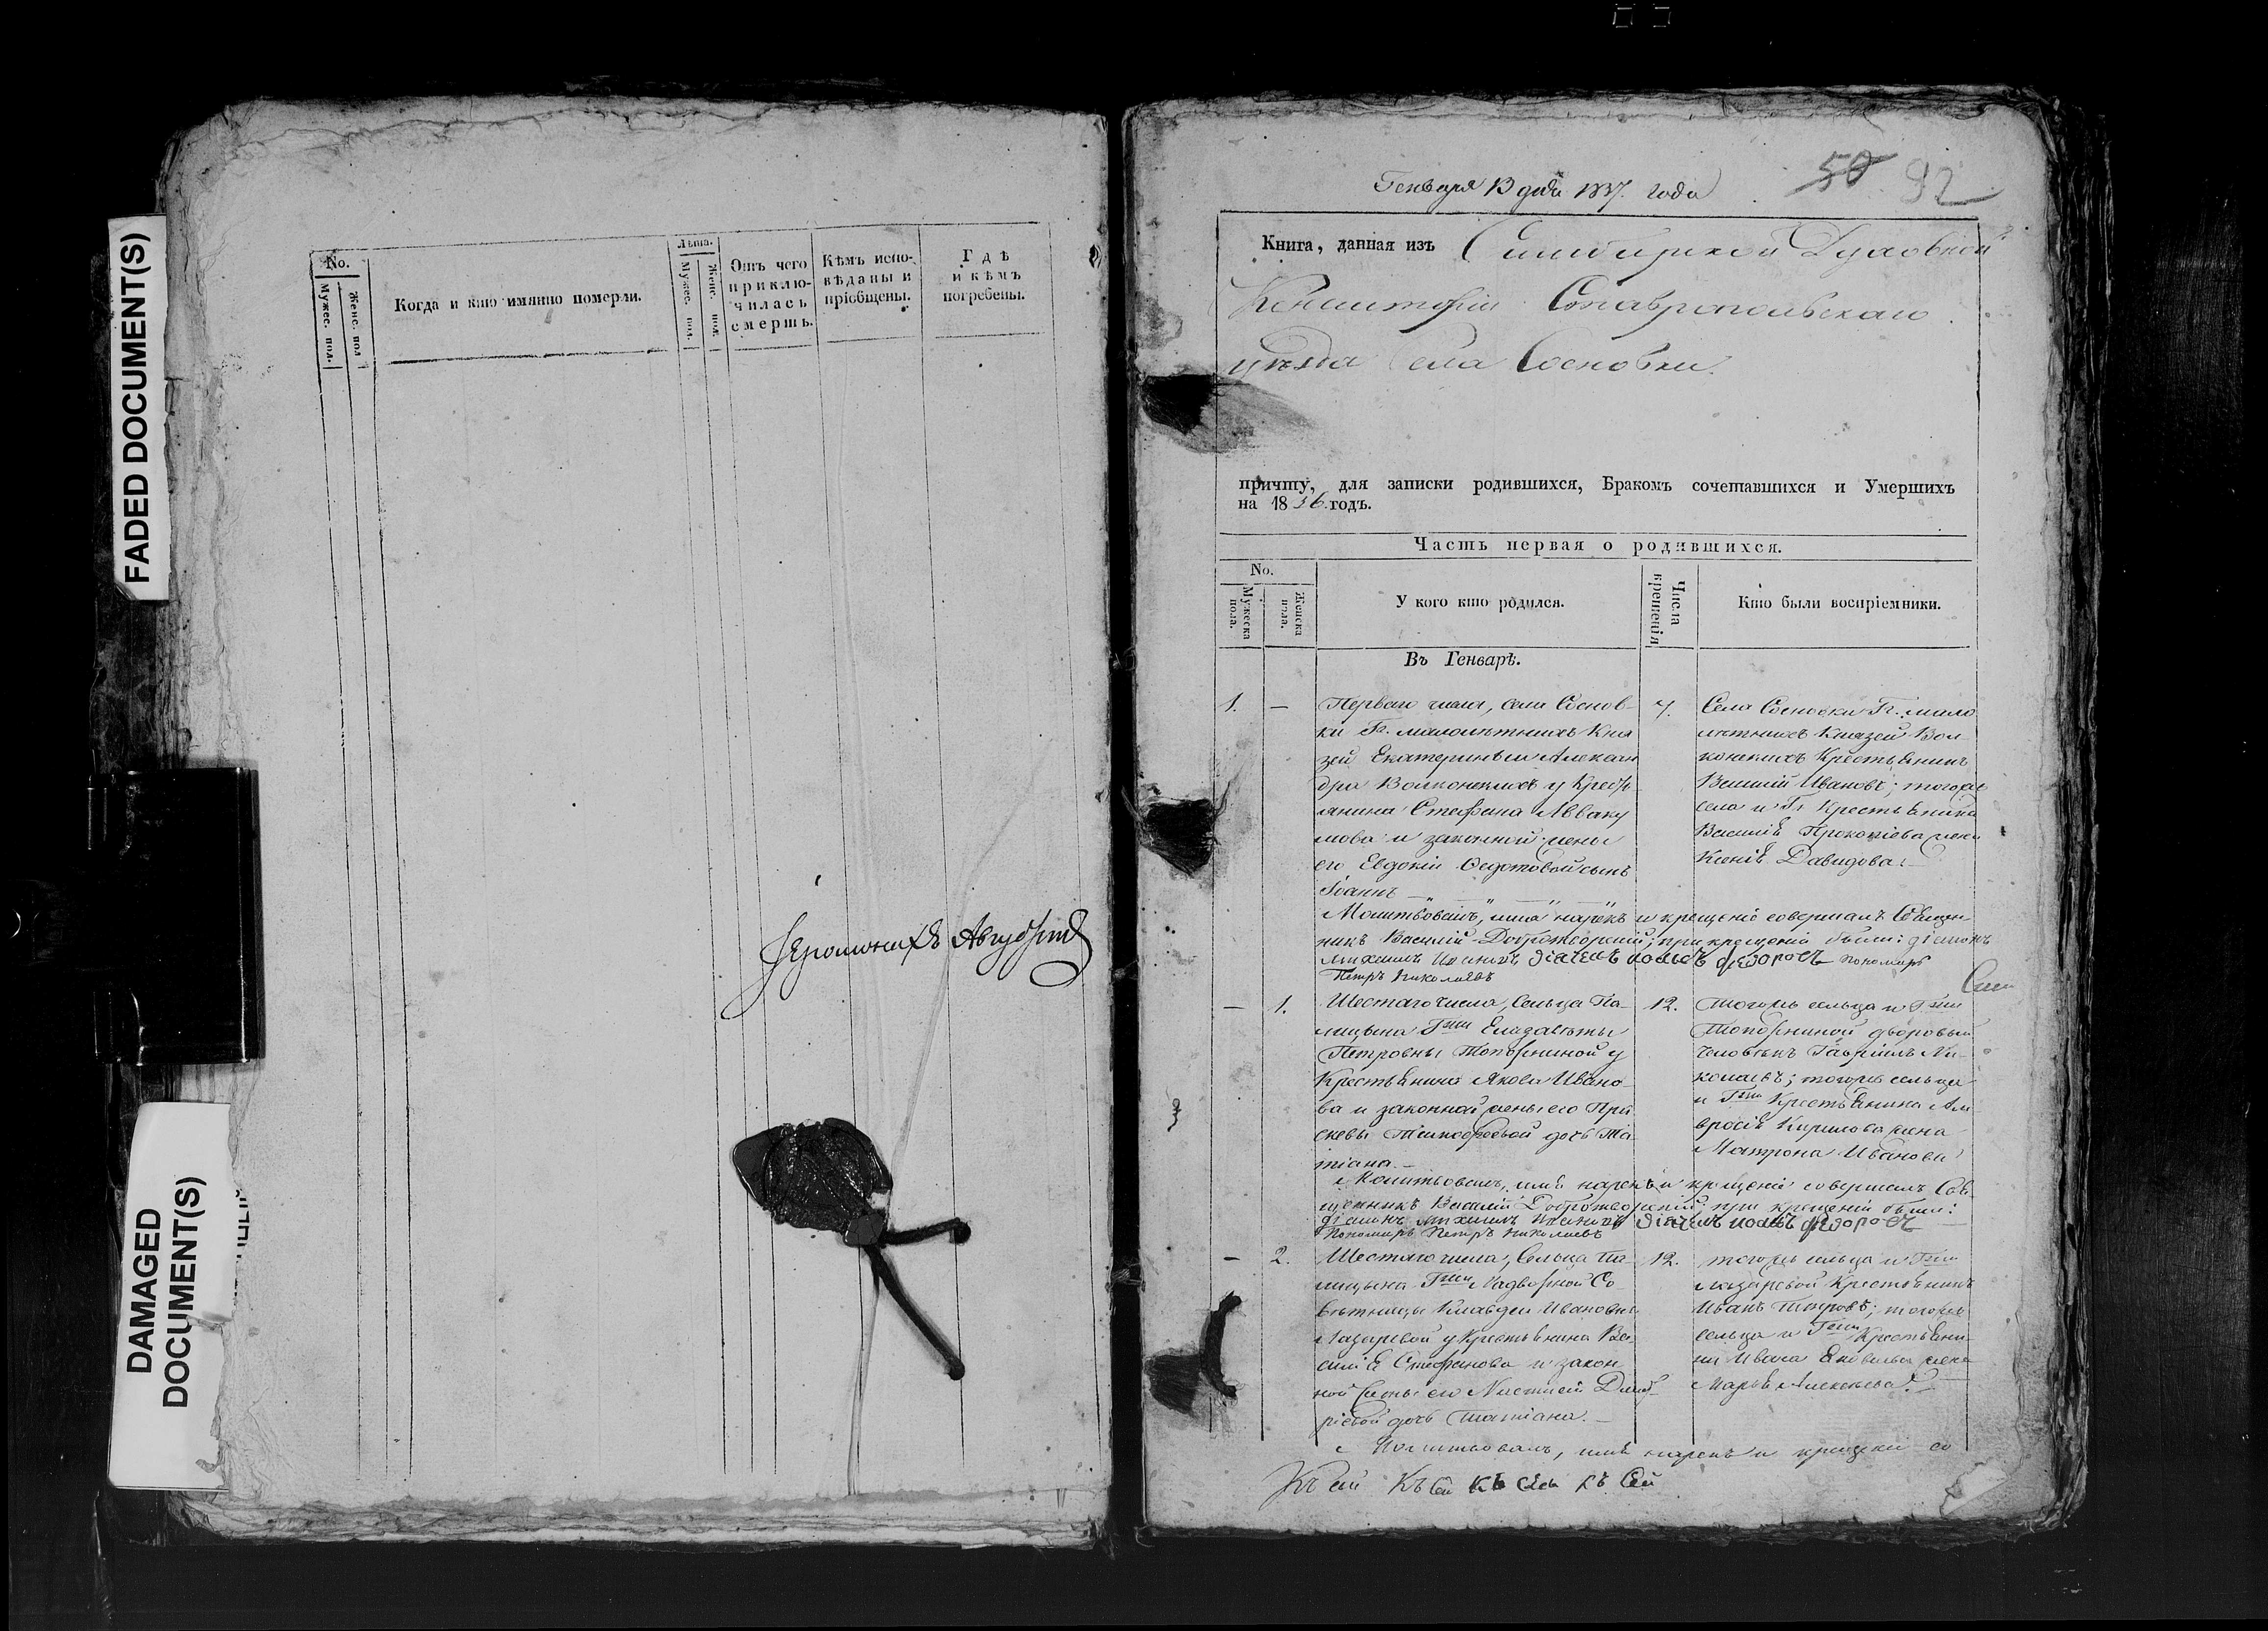 FADED DOCUMENT(S)
DAMAGED
DOCUMENT(S)
No.
Мужес. пол.
Женс. пол
Когда и кто имянно померли.
Лѣта.
Мужес. пол.
Женс. пол.
Отъ чего
приклю-
чилась
смерть.
Кѣмъ испо-
вѣданы и
пріобщены.
Гдѣ
и кѣмъ
погребены.
Іеромонахъ Августинъ
Генваря 13 дня 1837. года
50 92
Книга, данная изъ Симбирской Духовной
Консисторіи Ставропольскаго
уѣзда села Сосновки
причту, для записки родившихся, Бракомъ сочетавшихся и Умершихъ
на 1836. годъ.
Часть первая о родившихся.
No.
Мужеска
пола.
Женска
пола.
У кого кто родился.
Числа
крещенія
Кто были воспріемники.
Въ Генварѣ.
1. —
Перваго числа, села Соснов-
ки Гг. малолѣтнихъ Кня
зей Екатерины и Алексан
дра Волконскихъ у Кресть
янина Стефана Авваку
мова и законной жены
его Евдокіи Федотовой сынъ
Іоаннъ —
7.
Села Сосновки Гг. мало
лѣтнихъ Князей Вол
конскихъ Крестьянинъ
Василій Ивановъ; тогожъ
села и Гг. Крестьянина
Василія Прокопіева жена
Ксенія Давидова. —
Молитвовалъ, имя нарекъ и крещеніе совершалъ Священ-
никъ Василій Добротворскій; при крещеніи были: діаконъ
Михаилъ дьячекъ федоровъ пономарь
Петръ Николаевъ
— 1.
Шестаго числа, Сельца Па-
лицына Гжи Елизаветы
Петровны Топорниной у
Крестьянина Якова Ивано
ва и законной жены его Пра
скевы Тимофеевой дочь Та-
тіана. —
12.
тогожъ сельца и Гжи
Топорниной дворовый
человѣкъ Гавріилъ Ни-
колаевъ; тогожъ сельца
и Гжи Крестьянина Ам
вросія Кирилова жена
Матрона Иванова
Молитвовалъ, имя нарекъ и крещеніе совершалъ Свя-
щенникъ Василій Добротворскій; при крещеніи были:
діаконъ Михаилъ дьячекъ федоровъ
Пономарь Петръ Николаевъ
— 2.
Шестаго числа, Сельца Па-
лицына Гжи Надворной Со
вѣтницы Клавдеи Ивановны
Лазаревой у Крестьянина Ва
силія Стефанова и закон
ной жены его Дмит
ріевой дочь Татіана. —
12.
тогожъ сельца и Гжи
Лазаревой Крестьянинъ
Иванъ Петровъ; тогожъ
сельца и Гжи Крестьяни-
на Ивана Яковлева жена
Марья Алексѣева. —
Молитвовалъ, имя нарекъ и крещеніе со
Къ сей Къ сей Къ сей Къ Сей